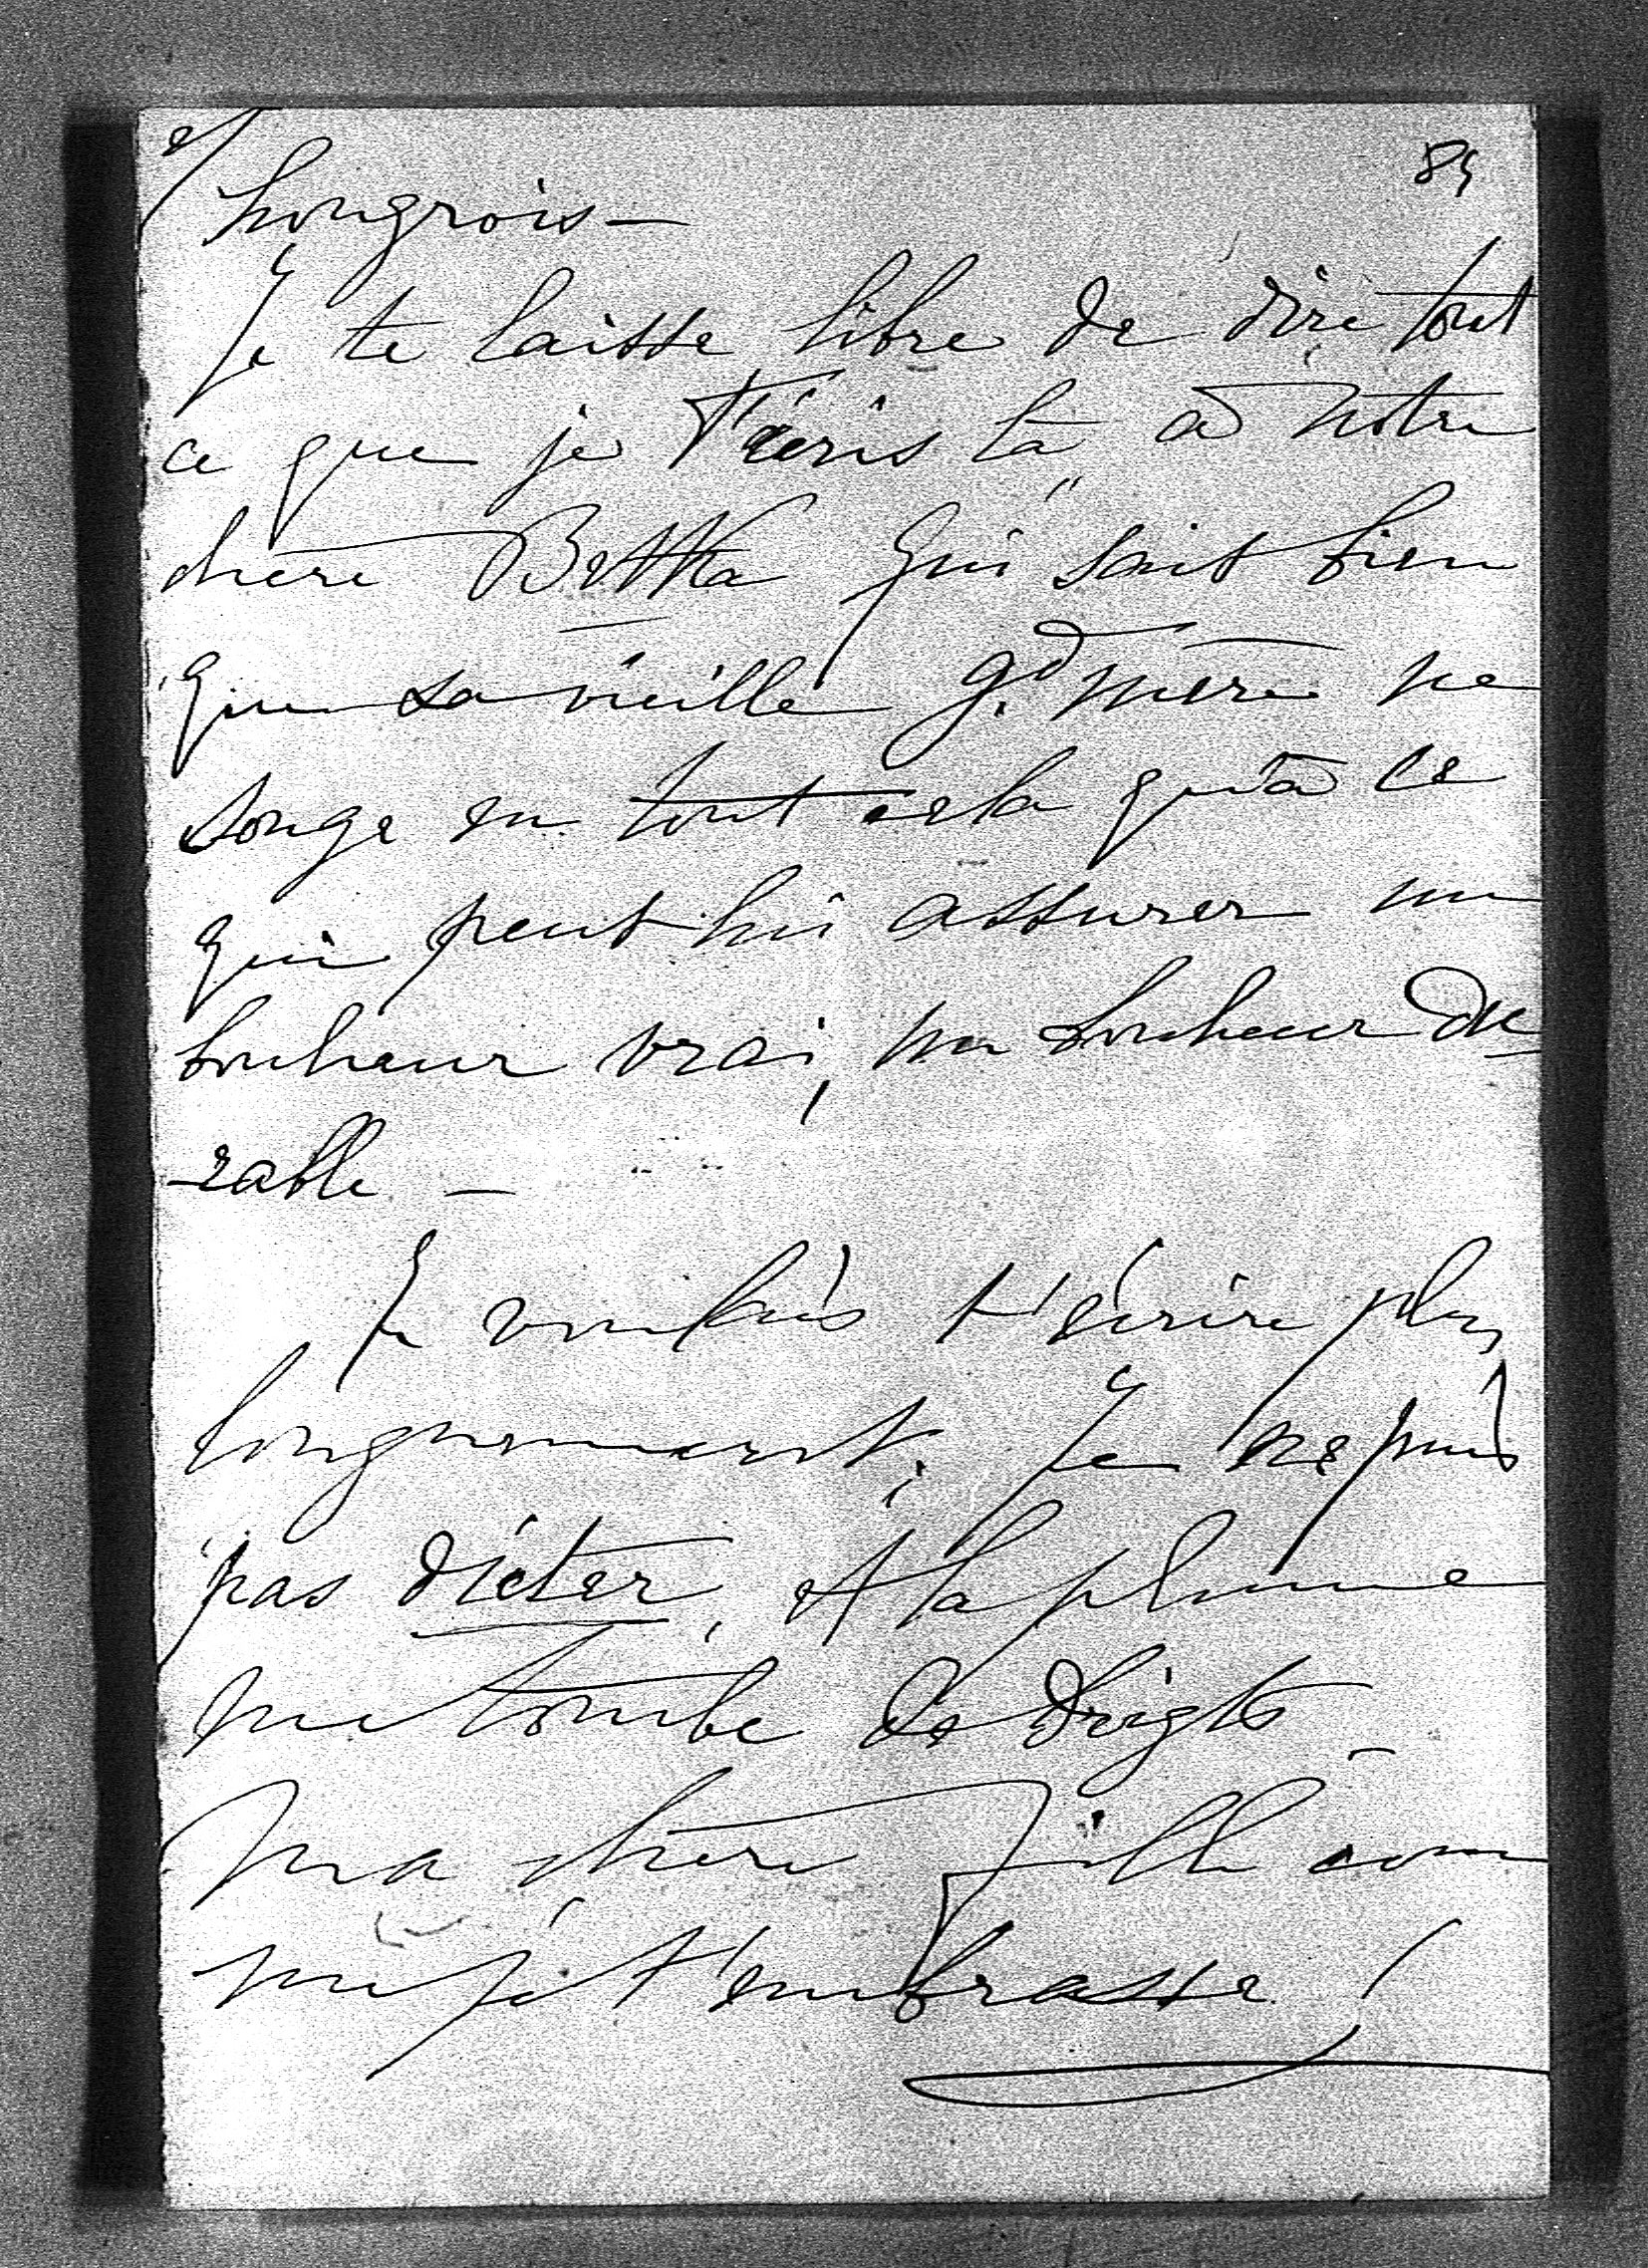 et 84
hongrois —
Je te laisse libre de dire tout
ce que je t'écris là à notre
chère Bettka qui sait bien
que sa vieille gd mère ne
songe en tout cela qu'à ce
qui peut lui assurer un
bonheur vrai, un bonheur du-
-rable —
Je voulais t'écrire plus
longuement; Je ne puis
pas dicter, et la plume
me tombe des doigts —
Ma chère fille com
me je t'embrasse !